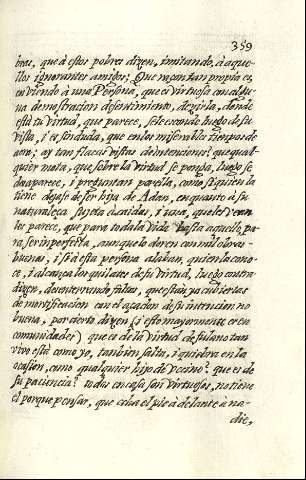 359
bras, que à estos pobres dizen, imitando, à aque-
llos ignorantes amigos; Que razon tan propia es,
en viendo à una Persona, que es virtuosa con algu-
na demostracion de sentimiento, dezirla, donde
està tu virtud, que parece, se le escondio luego de su
vista, i es, sin duda, que en los miserables tiempos de
aora; ay tan flacas vistas de intenciones; que qual-
quier mota, que sobre la virtud se ponga, luego se
desaparece, i preguntan por ella, como si quien la
tiene dejase de ser hija de Adan, en quanto à su
naturaleza sujeta à caidas, i
les parece, que para toda la vida basta aquello, pa-
ra ser imperfecta, aunque lo doren con mil obras
buenas, i si à esta persona alaban, quien la cono-
ce, i alcança los quilates de su virtud, luego contra
dizen, desenterrando faltas, que estàn ya cubiertas
de mortificacion con el açadon de su intencion no
buena, por cierto dizen (i esto mayormente es en
comunidades) que es de la virtud de fulano tan
viva està como yo, tambien salta, i quiebra en la
ocasion, como qualquier hijo de vecino: que es de
su paciencia? todos en casa son virtuosos, no tiene
el porque pensar, que echa el pie à delante à na-
die,